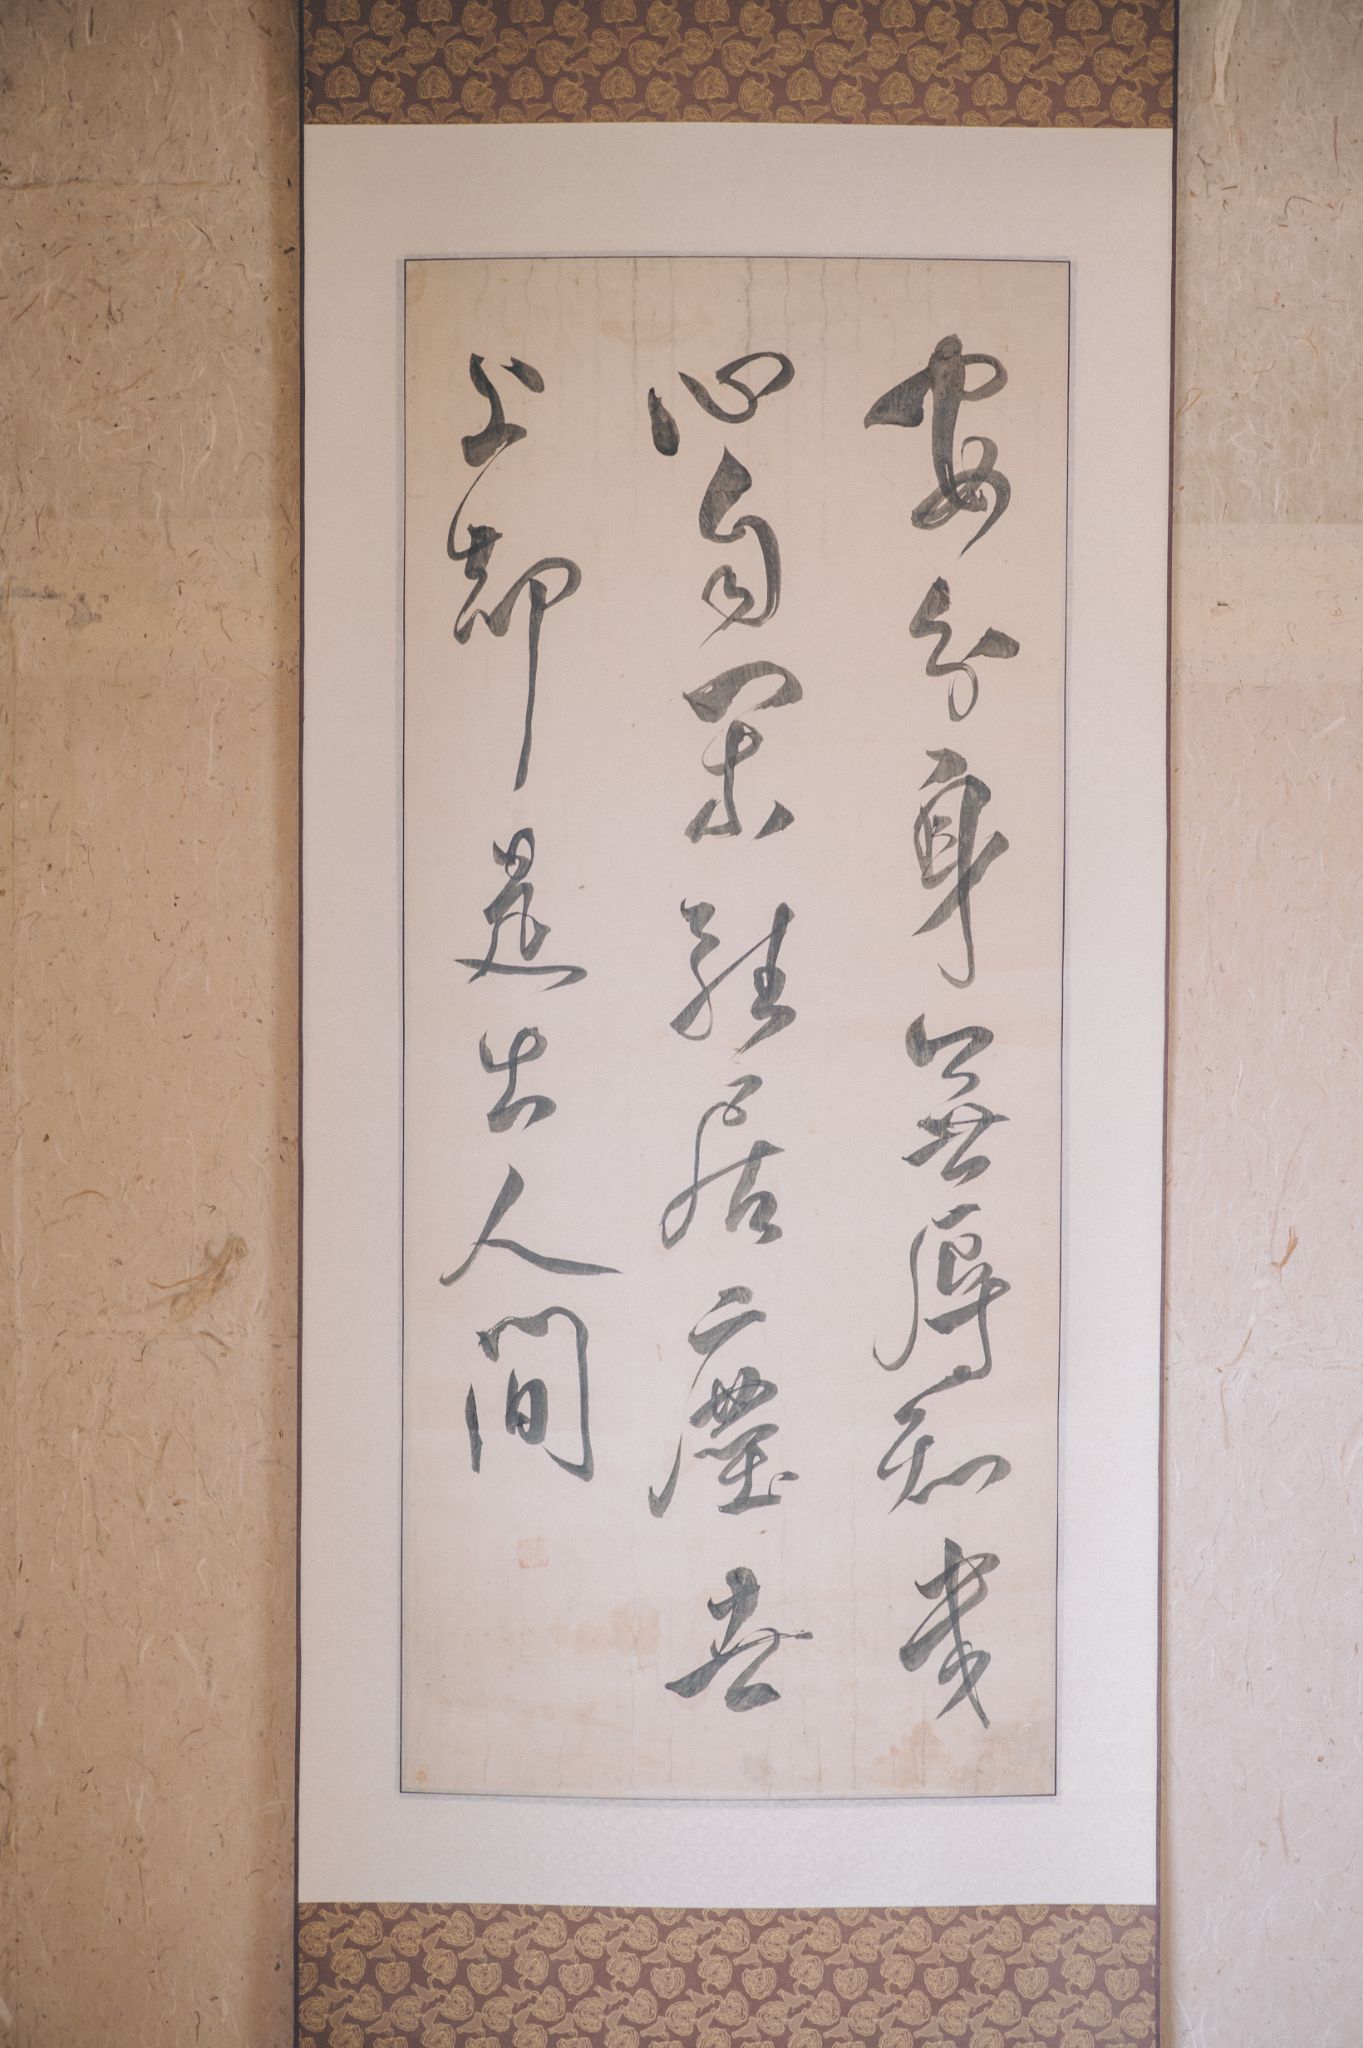 安分身無辱知幾
心自閑雖居塵世
上却是出人間